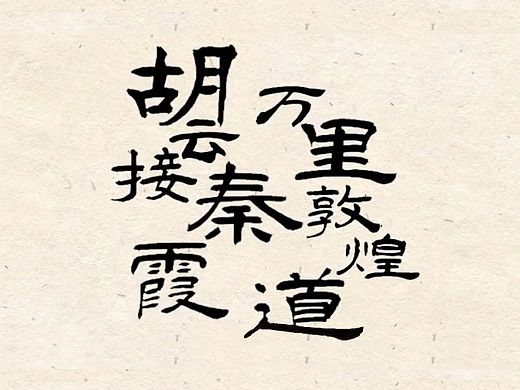 万里敦煌道
胡云接秦霞